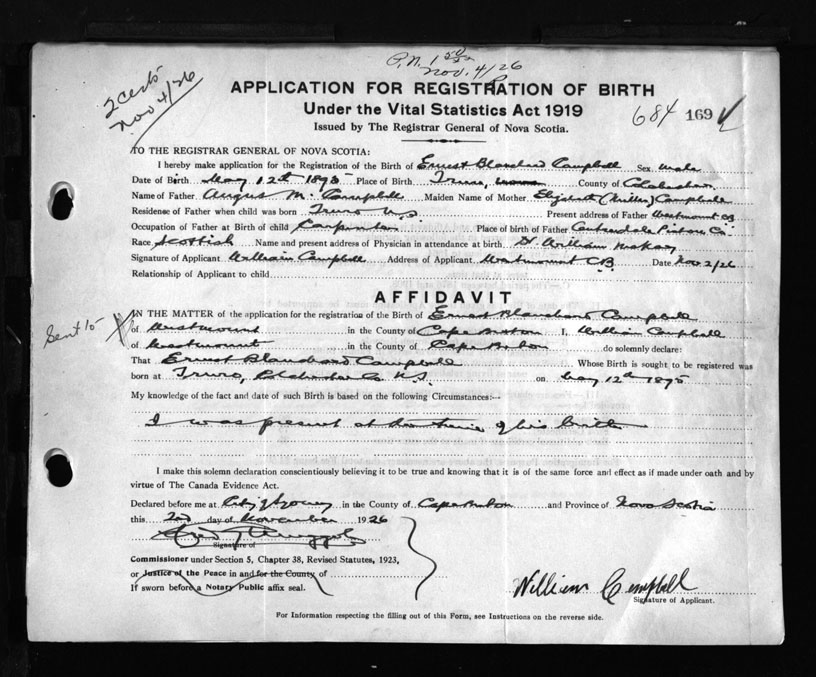 P.N. 1 50
Nov. 4/26
2 certs
Nov 4/26
APPLICATION FOR REGISTRATION OF BIRTH
Under the Vital Statistics Act 1919
Issued by The Registrar General of Nova Scotia.
684 169
TO THE REGISTRAR GENERAL OF NOVA SCOTIA:
I hereby make application for the Registration of the Birth of Ernest Blanchard Campbell Sex male
Date of Birth May 12th 1895 Place of Birth Truro, County of Colchester
Name of Father Angus M. Campbell Maiden Name of Mother Elizabeth (Miller) Campbell
Residence of Father when child was born Truro N.S. Present address of Father Westmount CB
Occupation of Father at Birth of child Carpenter Place of birth of Father Centredale Pictou Co.
Race Scottish Name and present address of Physician in attendance at birth Dr. William McKay
Signature of Applicant William Campbell Address of Applicant Westmount CB. Date Nov 2/26
Relationship of Applicant to child
AFFIDAVIT
IN THE MATTER of the application for the registration of the Birth of Ernest Blanchard Campbell
Sent 15
of Westmount in the County of Cape Breton I, William Campbell
of Westmount in the County of Cape Breton do solemnly declare:
That Ernest Blanchard Campbell Whose Birth is sought to be registered was
born at Truro, Colchester Co. N.S. on May 12th 1895
My knowledge of the fact and date of such Birth is based on the following Circumstances:—
I was present at the time of his birth
I make this solemn declaration conscientiously believing it to be true and knowing that it is of the same force and effect as if made under oath and by
virtue of The Canada Evidence Act.
Declared before me at City of Sydney in the County of Cape Breton and Province of Nova Scotia
this 2nd day of November 1926
Signature of
Commissioner under Section 5, Chapter 38, Revised Statutes, 1923,
or Justice of the Peace in and for the County of
If sworn before a Notary Public affix seal.
William Campbell
Signature of Applicant.
For Information respecting the filling out of this Form, see Instructions on the reverse side.